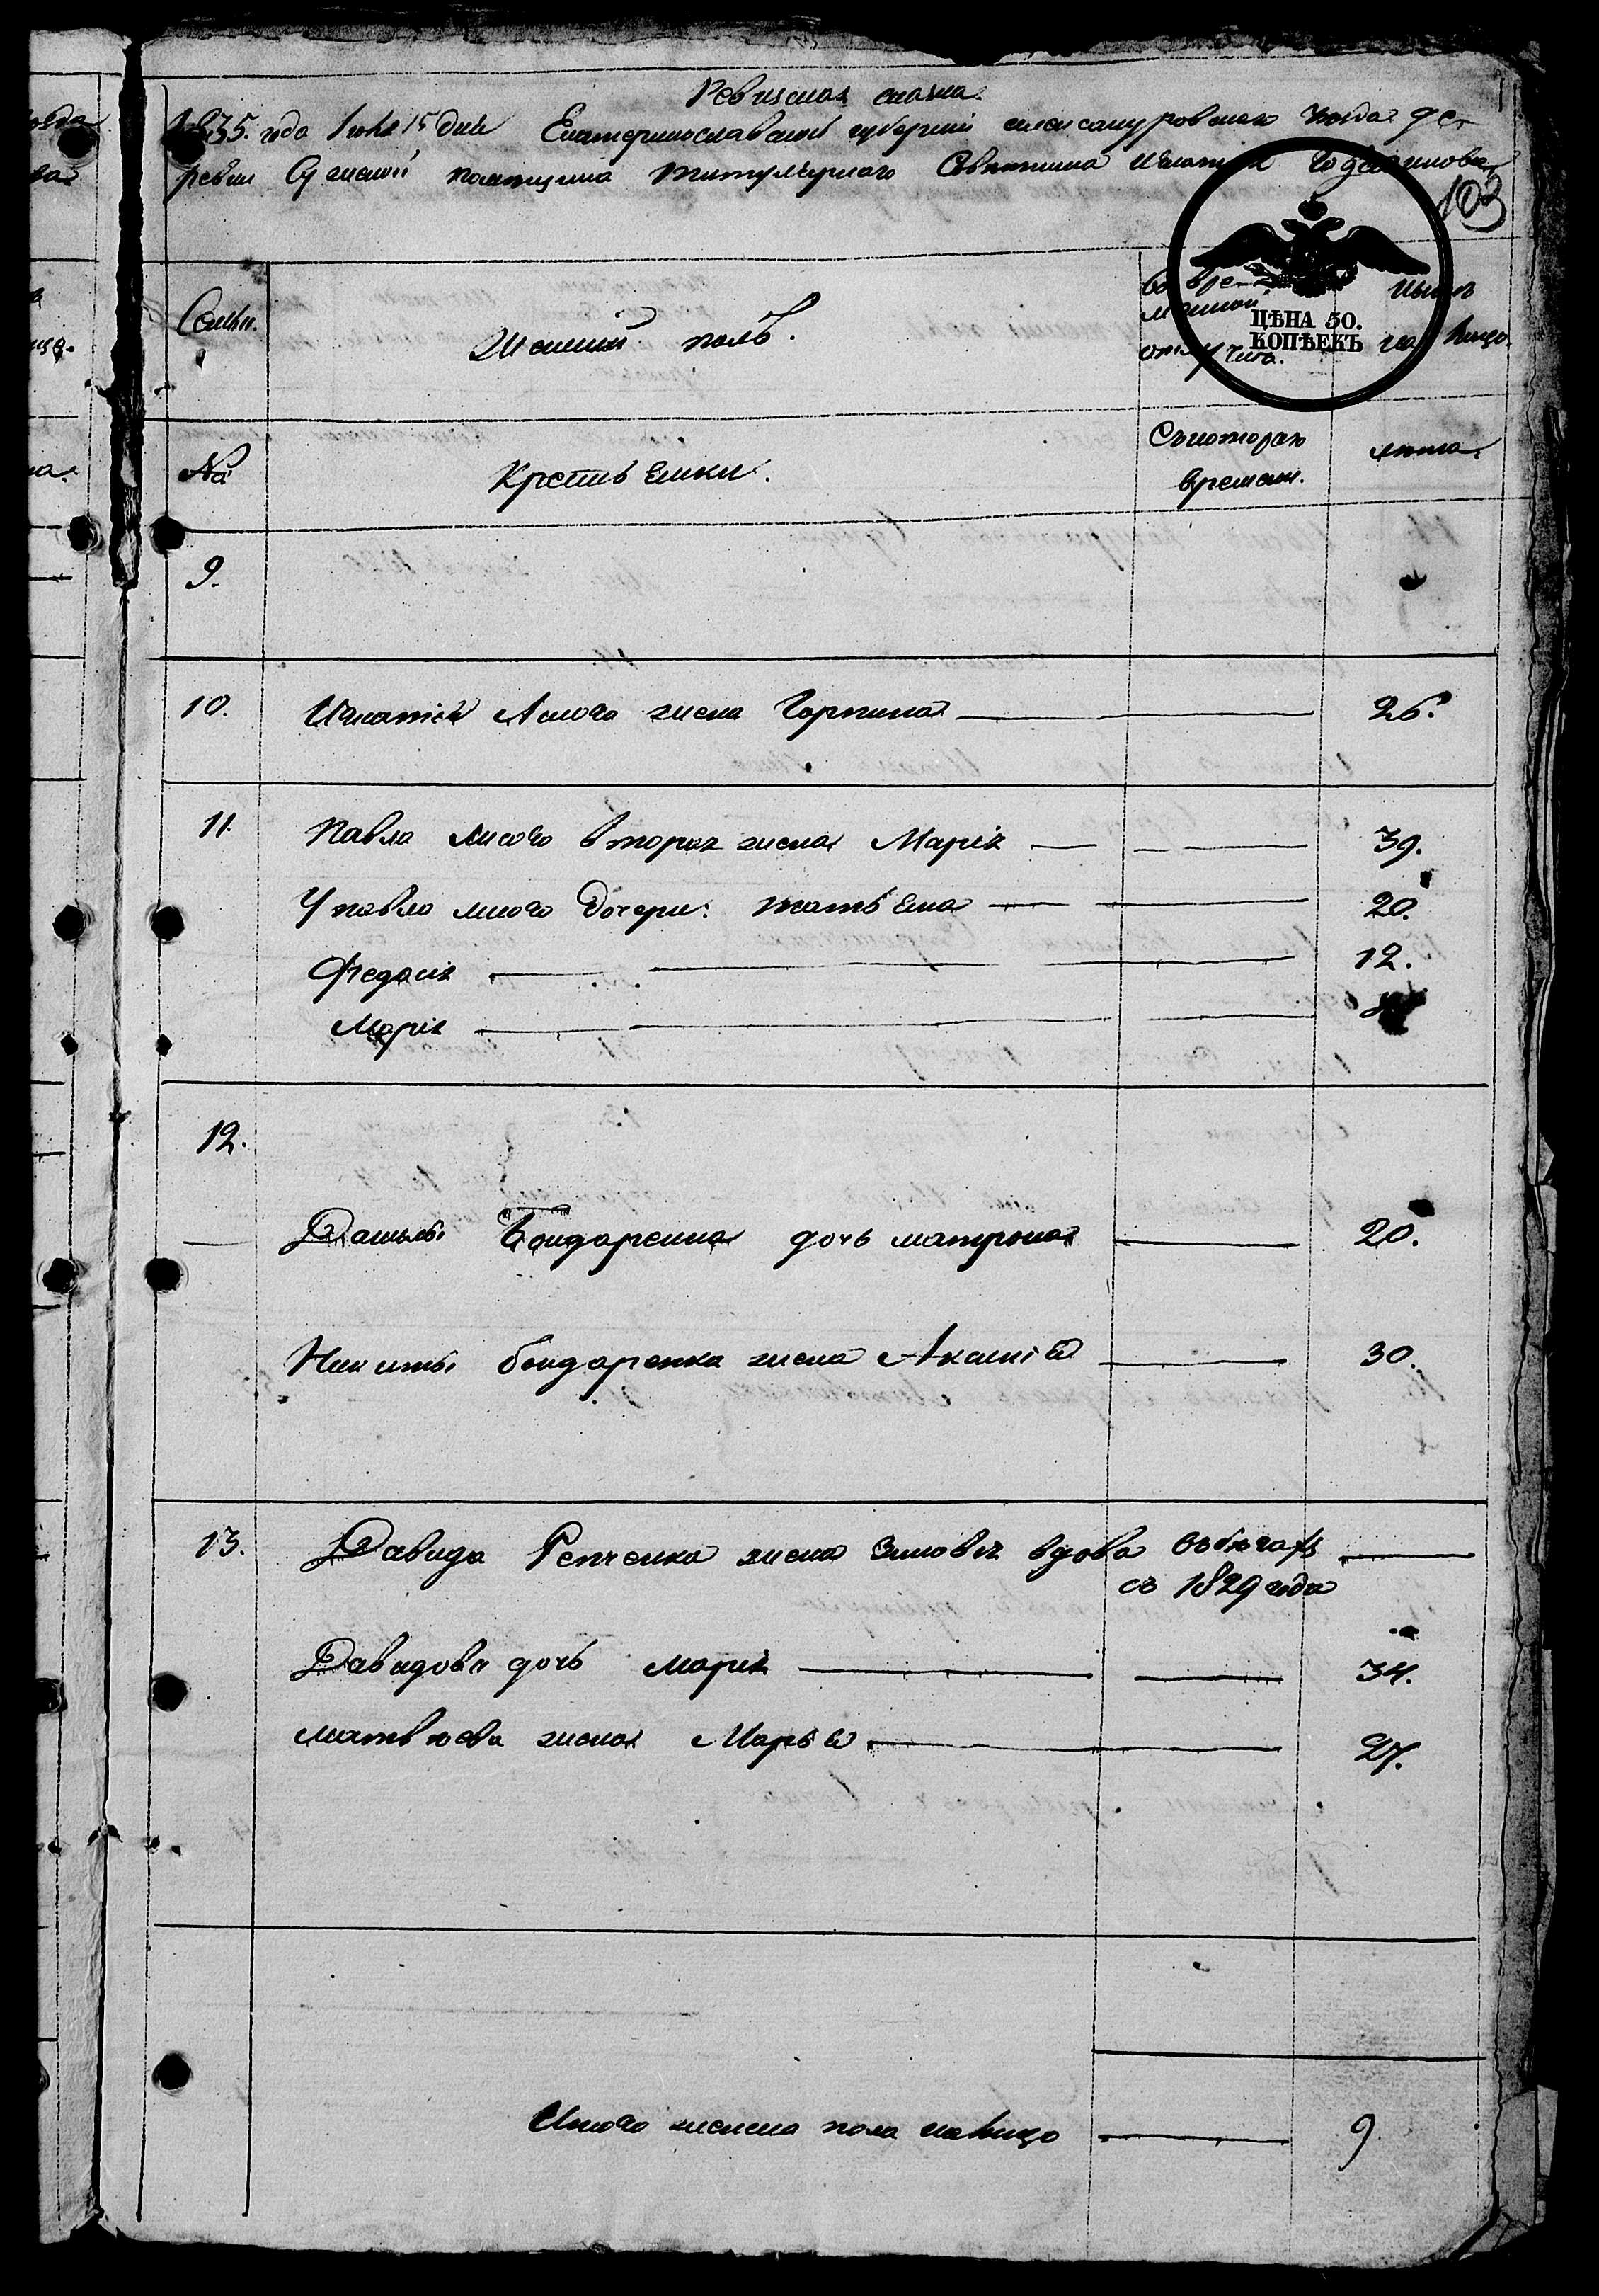 Ревизская сказка
1835. года Iюня 15 дня Екатеринославской губернiи александровского уезда де-
ревни помещика титулярного Советника Игнатiя
103
Семьи.
Женский полъ.
во вре-
менной
отлучке.
ЦѢНА 50.
КОПѢЕКЪ
ныне
на лицо
№
Крестьянки.
Съ котораго
времени.
лета.
9.
10. Игнатiя Лисого жена Горпина 26.
11. Павла Лисого вторая жена Марiя 39.
У павла лисого дочери: татьяна 20.
Федосия 12.
Марiя
12.
Данилы Бондаренка дочь матрона 20.
Никиты бондаренка жена Акилина 30.
13. Давида Репченка жена Зиновiя вдова в бегах
съ 1829 года
Давидова дочь марiя 34.
матвеева жена Марья 27.
Итого женска пола на лицо 9